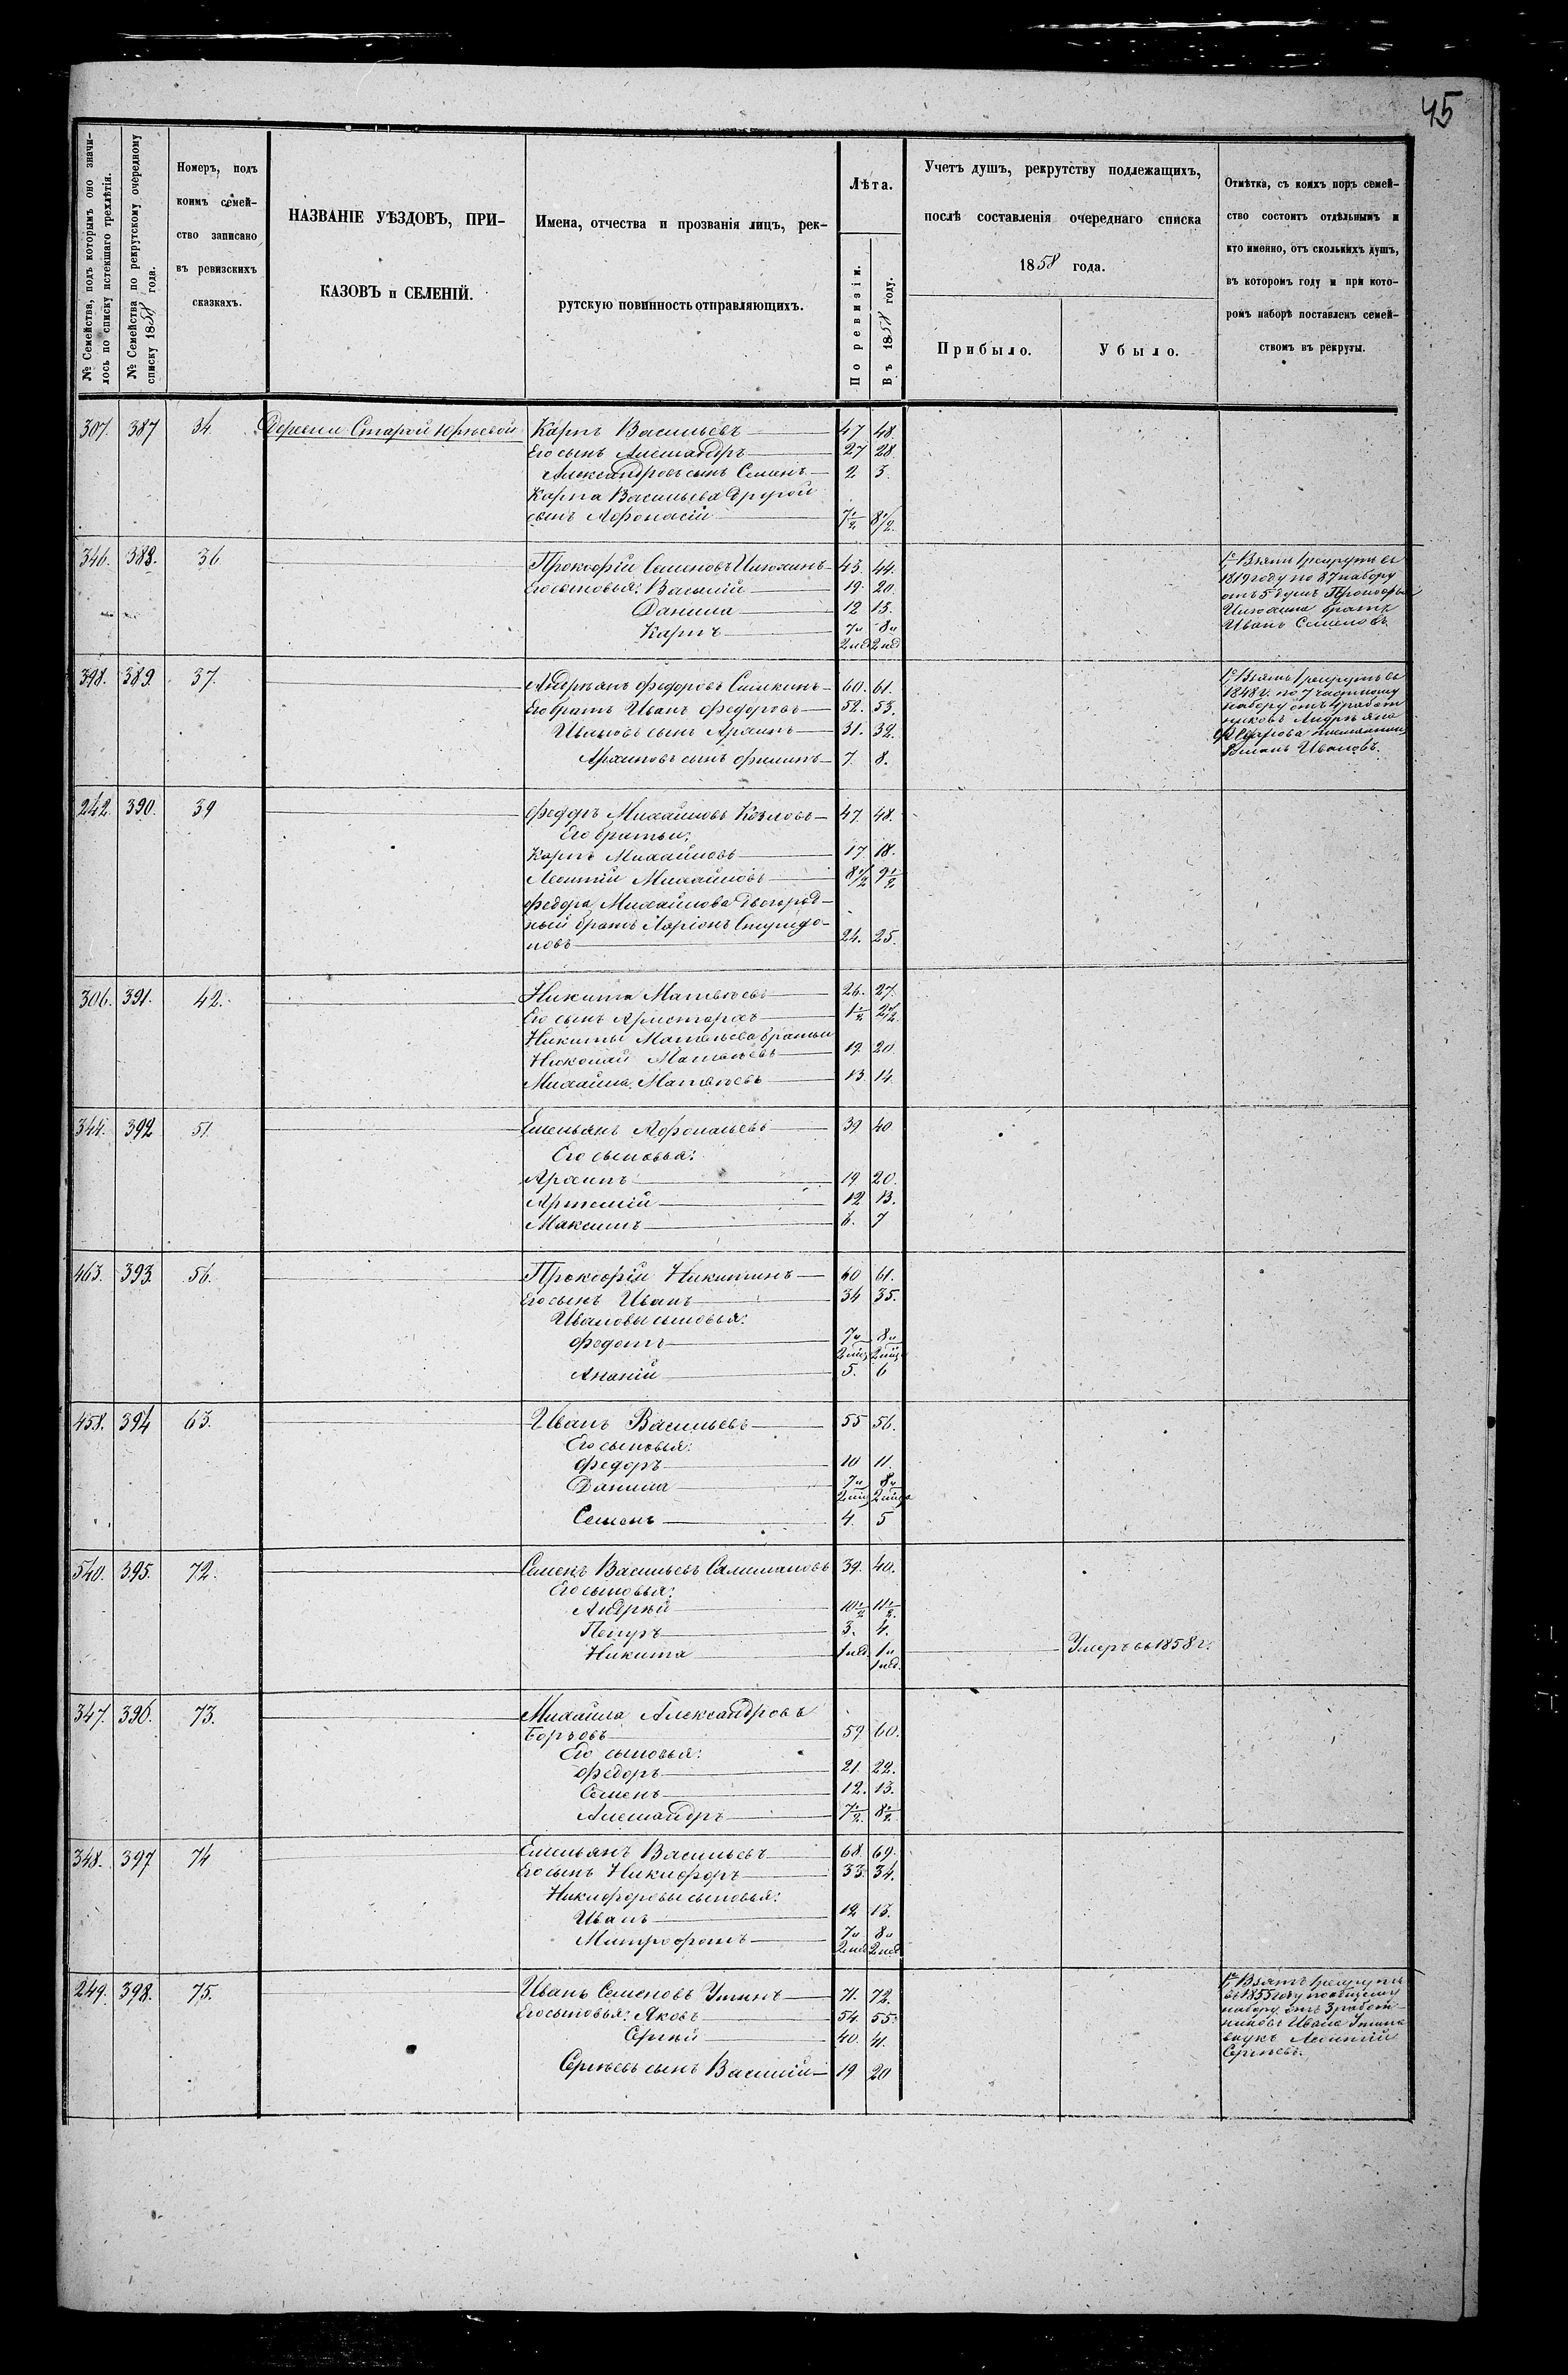 45
№ Семейства, подъ которымъ оно значи-
лось по списку истекшаго трехлѣтія.
№ Семейства по рекрутскому очередному
списку 1858 года.
Номеръ, подъ
коимъ семей-
ство записано
въ ревизскихъ
сказкахъ.
НАЗВАНІЕ УѢЗДОВЪ, ПРИ-
КАЗОВЪ и СЕЛЕНІЙ.
Имена, отчества и прозванія лицъ, рек-
рутскую повинность отправляющихъ.
Лѣта.
По ревизіи.
Въ 1858 году.
Учетъ душъ, рекрутству подлежащихъ,
послѣ составленія очереднаго списка
1858 года.
Прибыло.
Убыло.
Отмѣтка, съ коихъ поръ семей-
ство состоитъ отдѣльнымъ и
кто именно, отъ сколькихъ душъ,
въ которомъ году и при кото-
ромъ наборѣ поставленъ семей-
ствомъ въ рекруты.
307. 387 34. Деревни Старой Юрьевой Карпъ Васильевъ 47 48.
Его сынъ Александръ 27 28.
Александровъ сынъ Семенъ 2 3.
Карпа Васильева другой
сынъ Афонасій 7 1/2 8 1/2.
346. 388. 36 Прокофій Семеновъ 43. 44.
Его сыновья: Василій 19. 20.
Данила 12 13.
Карпъ 7 и 8 и
2 нед 2 нед
1е Взятъ 1 рекрутъ въ
1819 году по 87 набору
отъ 5 душъ Прокофья
братъ
Иванъ Семеновъ.
398. 389. 37. Андреянъ Федоровъ Симкинъ 60. 61.
Его братъ Иванъ Федоровъ 52. 53.
Ивановъ сынъ Архипъ 31. 32.
Архиповъ сынъ Филипъ 7. 8.
1е Взятъ 1 рекрутъ въ
1848 г. по 7 частному
набору отъ 4 работ
никовъ Андреяна
Федорова племянникъ
Иванов.
242. 390. 39 Федоръ Михайловъ Козловъ 47 48.
Его братья:
Карпъ Михайловъ 17 18.
Леонтій Михайловъ 8 1/2 9 1/2
Федора Михайлова двоюрод-
ный братъ Ларіонъ Спиридо-
новъ 24. 25.
306. 391. 42. Никита Матвѣевъ 26. 27.
Его сынъ Аристархъ 1 1/2 2 1/2.
Никиты Матвѣева братья
Николай Матвѣевъ 19. 20.
Михайла Матвѣевъ 13. 14.
344. 392 51. Емельянъ Афонасьевъ 39 40
Его сыновья:
Архипъ 19. 20.
Артемій 12 13.
Максимъ 6. 7
463. 393. 56. Прокофій Никитинъ 60 61.
Его сынъ Иванъ 34 35.
Ивановы сыновья:
Федотъ 7 и 8 и
2 мѣс 2 мѣс
Ананій 5. 6
458. 394 63. Иванъ Васильевъ 55 56.
Его сыновья:
Федоръ 10 11.
Данила 7 и 8 и
2 мѣс 2 мѣс
Семенъ 4. 5
540. 395. 72. Семенъ Васильевъ 39. 40.
Его сыновья:
Андрей 10 1/2 11 1/2.
Петръ 3. 4.
Никита 1 нед. 1 и Умеръ въ 1858 г.
1 нед.
347. 396. 73. Михайла Александровъ
59 60.
Его сыновья:
Федоръ 21. 22.
Семенъ 12. 13.
Александръ 7 1/2. 8 1/2
348. 397 74 Емельянъ Васильевъ 68. 69.
Его сынъ Никифоръ 33. 34.
Никифоровы сыновья:
Иванъ 12 13.
Митрофанъ 7 и 8 и
2 нед 2 нед
249. 398. 75. Иванъ Семеновъ 71. 72.
Его сыновья: Яковъ 54. 55.
Сергѣй 40. 41.
Сергѣевъ сынъ Василій 19 20
1е Взятъ 1 рекрутъ
въ 1855 году по общему
набору отъ 3 работ-
никовъ Ивана
внукъ Леонтій
Сергѣевъ.